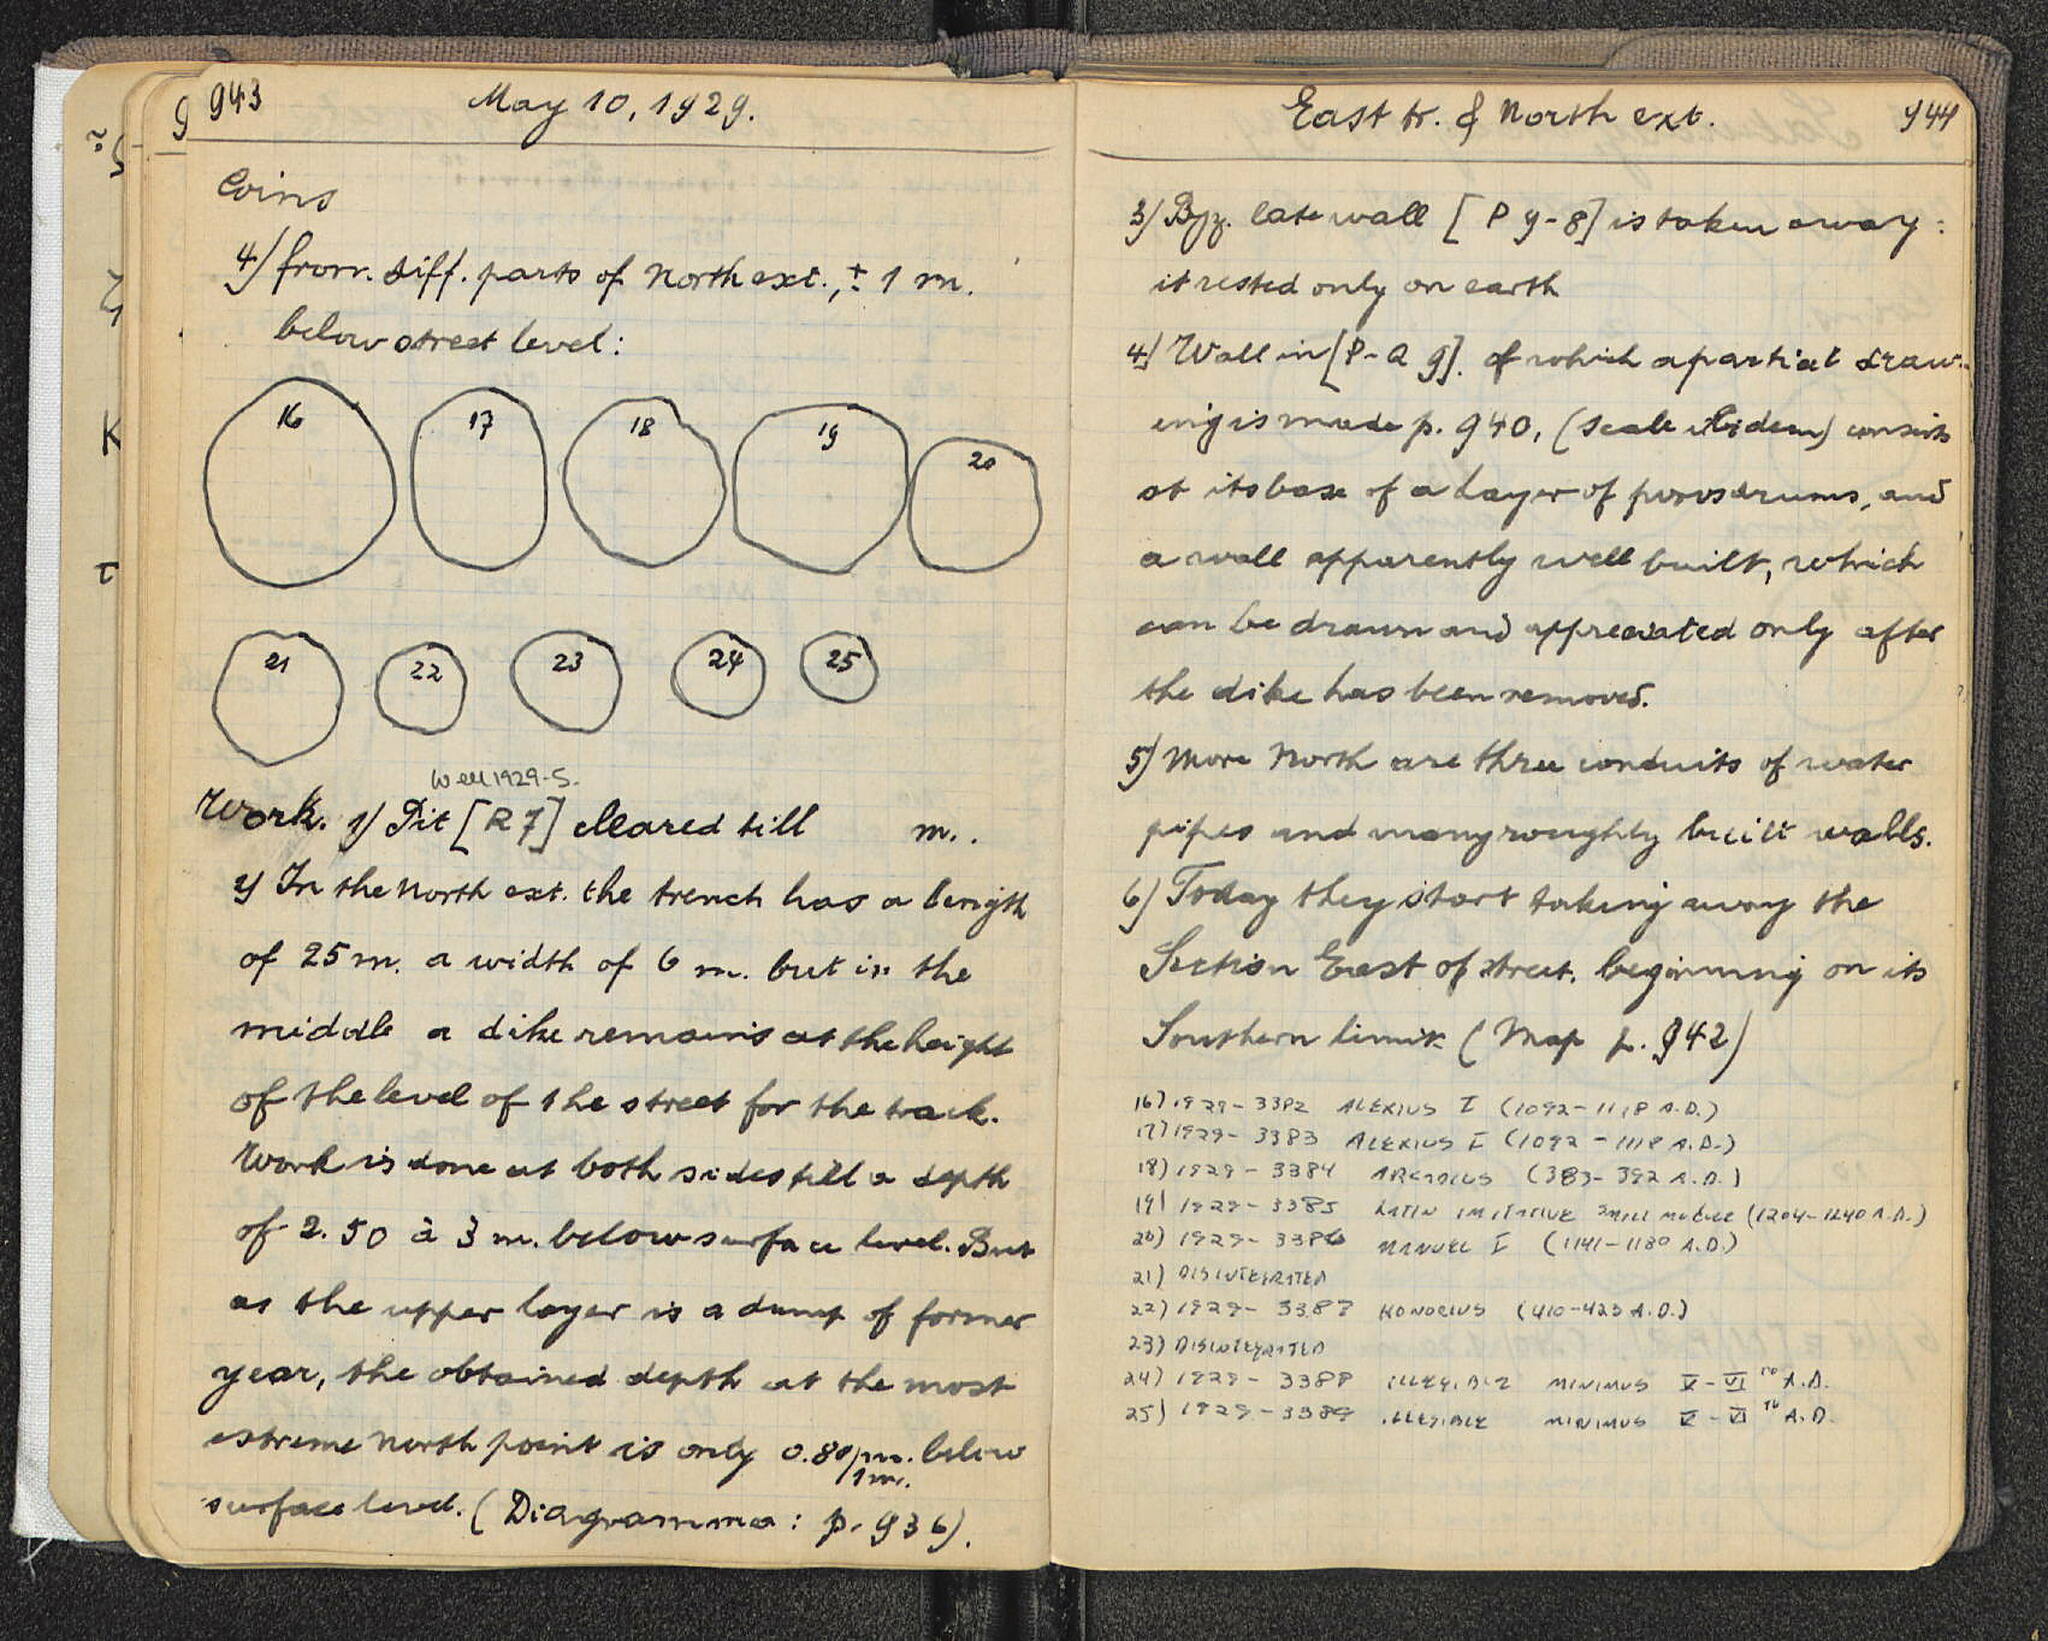 943
May 10, 1929.
Coins
4) from diff. parts of North ext., ± 1 m.
below street level:
16
17
18
19
20
21
22
23
24
25
Well 1929-5.
Work. 1) Pit [R 7] cleared till m..
2) In the North ext. the trench has a length
of 25 m. a width of 6 m. but in the
middle a dike remains at the height
of the level of the street for the track.
Work is done at both sides till a depth
of 2.50 à 3 m. below surface level. But
as the upper layer is a dump of former
year, the obtained depth at the most
extreme North point is only 0.80/m. below
1 m.
surface level. (Diagramma: p. 936).
East tr. & North ext.
944
3) Byz. late wall [P 9-8] is taken away:
it rested only on earth
4) Wall in [P-Q 9]. of which a partial draw-
ing is made p. 940, (scale ibidem) consists
at its base of a layer of poros drums, and
a wall apparently well built, which
can be drawn and appreciated only after
the dike has been removed.
5) More North are three conduits of water
pipes and many roughly built walls.
6) Today they start taking away the
Section East of street. beginning on its
Southern limit (Map p. 942)
16) 1929-3382 ALEXIUS I (1092-1118 A.D.)
17) 1929-3383 ALEXIUS I (1092-1118 A.D.)
18) 1929-3384 ARCADIUS (383-392 A.D.)
19) 1929-3385 LATIN IMITATIVE SMALL MODULE (1204-1240 A.D.)
20) 1929-3386 MANUEL I (1141-1180 A.D.)
21) DISINTEGRATED
22) 1929-3387 HONORIUS (410-423 A.D.)
23) DISINTEGRATED
24) 1929-3388 ILLEGIBLE MINIMUS V-VI TH A.D.
25) 1929-3389 ILLEGIBLE MINIMUS V-VI TH A.D.